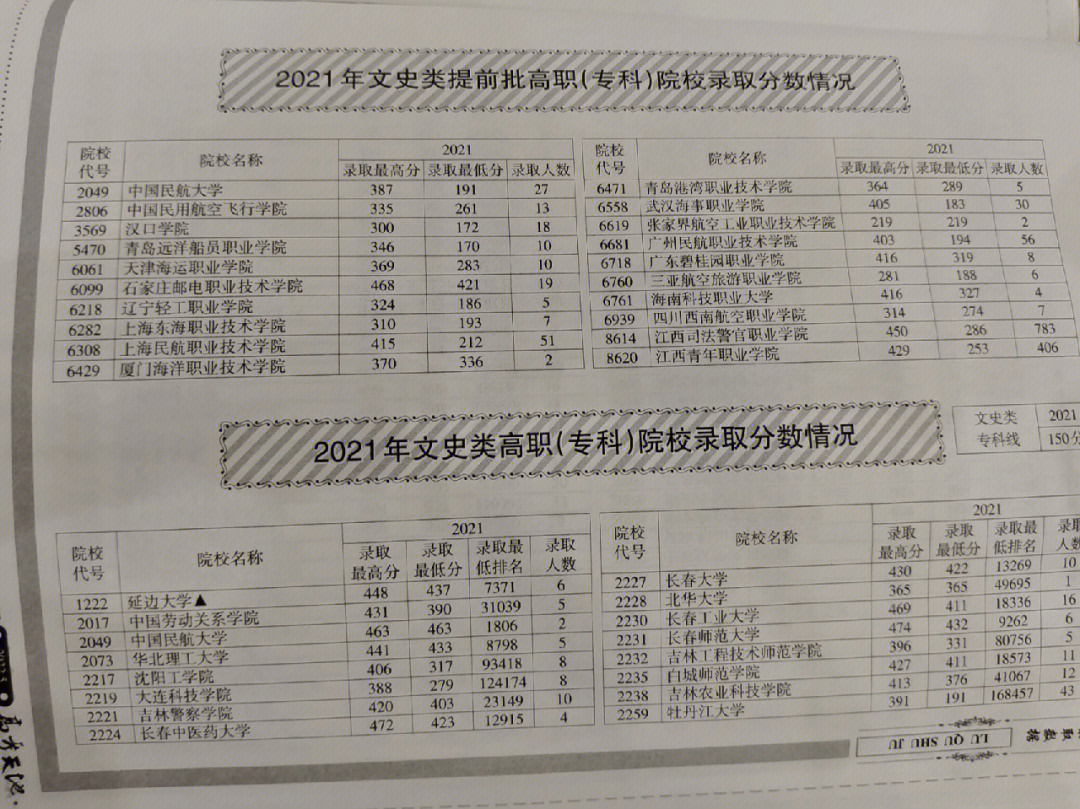 2021年文史类提前批高职(专科)院校录取分数情况
院校代号 院校名称 2021
录取最高分 录取最低分 录取人数
2049 中国民航大学 387 191 27
2806 中国民用航空飞行学院 335 261 13
3569 汉口学院 300 172 18
5470 青岛远洋船员职业学院 346 170 10
6061 天津海运职业学院 369 283 10
6099 石家庄邮电职业技术学院 468 421 19
6218 辽宁轻工职业学院 324 186 5
6282 上海东海职业技术学院 310 193 7
6308 上海民航职业技术学院 415 212 51
6429 厦门海洋职业技术学院 370 336 2
院校代号 院校名称 2021
录取最高分 录取最低分 录取人数
6471 青岛港湾职业技术学院 364 289 5
6558 武汉海事职业学院 405 183 30
6619 张家界航空工业职业技术学院 219 219 2
6681 广州民航职业技术学院 403 194 56
6718 广东碧桂园职业学院 416 319 8
6760 三亚航空旅游职业学院 281 188 6
6761 海南科技职业大学 416 327 4
6939 四川西南航空职业学院 314 274 7
8614 江西司法警官职业学院 450 286 783
8620 江西青年职业学院 429 253 406
2021年文史类高职(专科)院校录取分数情况
文史类 2021
专科线 150分
院校代号 院校名称 2021
录取最高分 录取最低分 录取最低排名 录取人数
1222 延边大学▲ 448 437 7371 6
2017 中国劳动关系学院 431 390 31039 5
2049 中国民航大学 463 463 1806 2
2073 华北理工大学 441 433 8798 5
2217 沈阳工学院 406 317 93418 8
2219 大连科技学院 388 279 124174 8
2221 吉林警察学院 420 403 23149 10
2224 长春中医药大学 472 423 12915 4
院校代号 院校名称 2021
录取最高分 录取最低分 录取最低排名 录取人数
2227 长春大学 430 422 13269 10
2228 北华大学 365 365 49695 1
2230 长春工业大学 469 411 18336 16
2231 长春师范大学 474 432 9262 6
2232 吉林工程技术师范学院 396 331 80756 5
2235 白城师范学院 427 411 18573 11
2238 吉林农业科技学院 413 376 41067 12
2259 牡丹江大学 391 191 168457 43
LU QU SHU JU
取数据
2022.5
高考天地